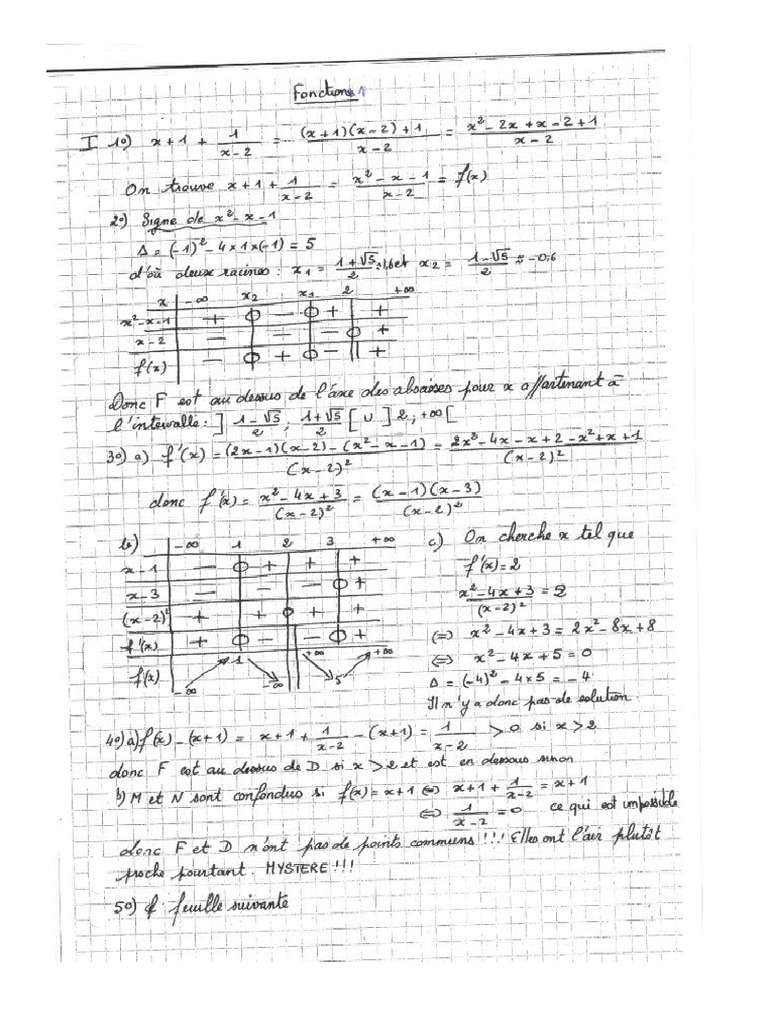 Fonctions 1
I 1°) x+1 + 1/(x-2) = ((x+1)(x-2)+1)/(x-2) = (x²-2x+x-2+1)/(x-2)
On trouve x+1+ 1/(x-2) = (x²-x-1)/(x-2) = f(x)
2°) Signe de x²-x-1
Δ = (-1)² - 4×1×(-1) = 5
d'où deux racines : x₁ = (1+√5)/2 ≈ 1,6 et x₂ = (1-√5)/2 ≈ -0,6
x | -∞ x₂ x₁ 2 +∞
x²-x-1 | + 0 - 0 + +
x-2 | - - - 0 +
f(x) | - 0 + 0 - || +
Donc F est au dessus de l'axe des abscisses pour x appartenant à
l'intervalle : ] (1-√5)/2 ; (1+√5)/2 [ ∪ ] 2 ; +∞ [
3°) a) f'(x) = ((2x-1)(x-2) - (x²-x-1))/(x-2)² = (2x²-4x-x+2-x²+x+1)/(x-2)²
donc f'(x) = (x²-4x+3)/(x-2)² = (x-1)(x-3)/(x-2)²
b) | -∞ 1 2 3 +∞
x-1 | - 0 + + +
x-3 | - - - 0 +
(x-2)² | + + 0 + +
f'(x) | + 0 - || - 0 +
f(x) | -∞ ↗ 1 ↘ -∞ || +∞ ↘ 5 ↗ +∞
c) On cherche x tel que
f'(x) = 2
(x²-4x+3)/(x-2)² = 2
⇔ x²-4x+3 = 2x²-8x+8
⇔ x²-4x+5 = 0
Δ = (-4)² - 4×5 = -4
Il n'y a donc pas de solution.
4°) a) f(x) - (x+1) = x+1+ 1/(x-2) - (x+1) = 1/(x-2) > 0 si x > 2
donc F est au dessus de D si x > 2 et est en dessous sinon
b) M et N sont confondus si f(x) = x+1 ⇔ x+1+ 1/(x-2) = x+1
⇔ 1/(x-2) = 0 ce qui est impossible
donc F et D n'ont pas de points communs !!! Elles ont l'air plutôt
proche pourtant. MYSTERE !!!
5°) cf feuille suivante